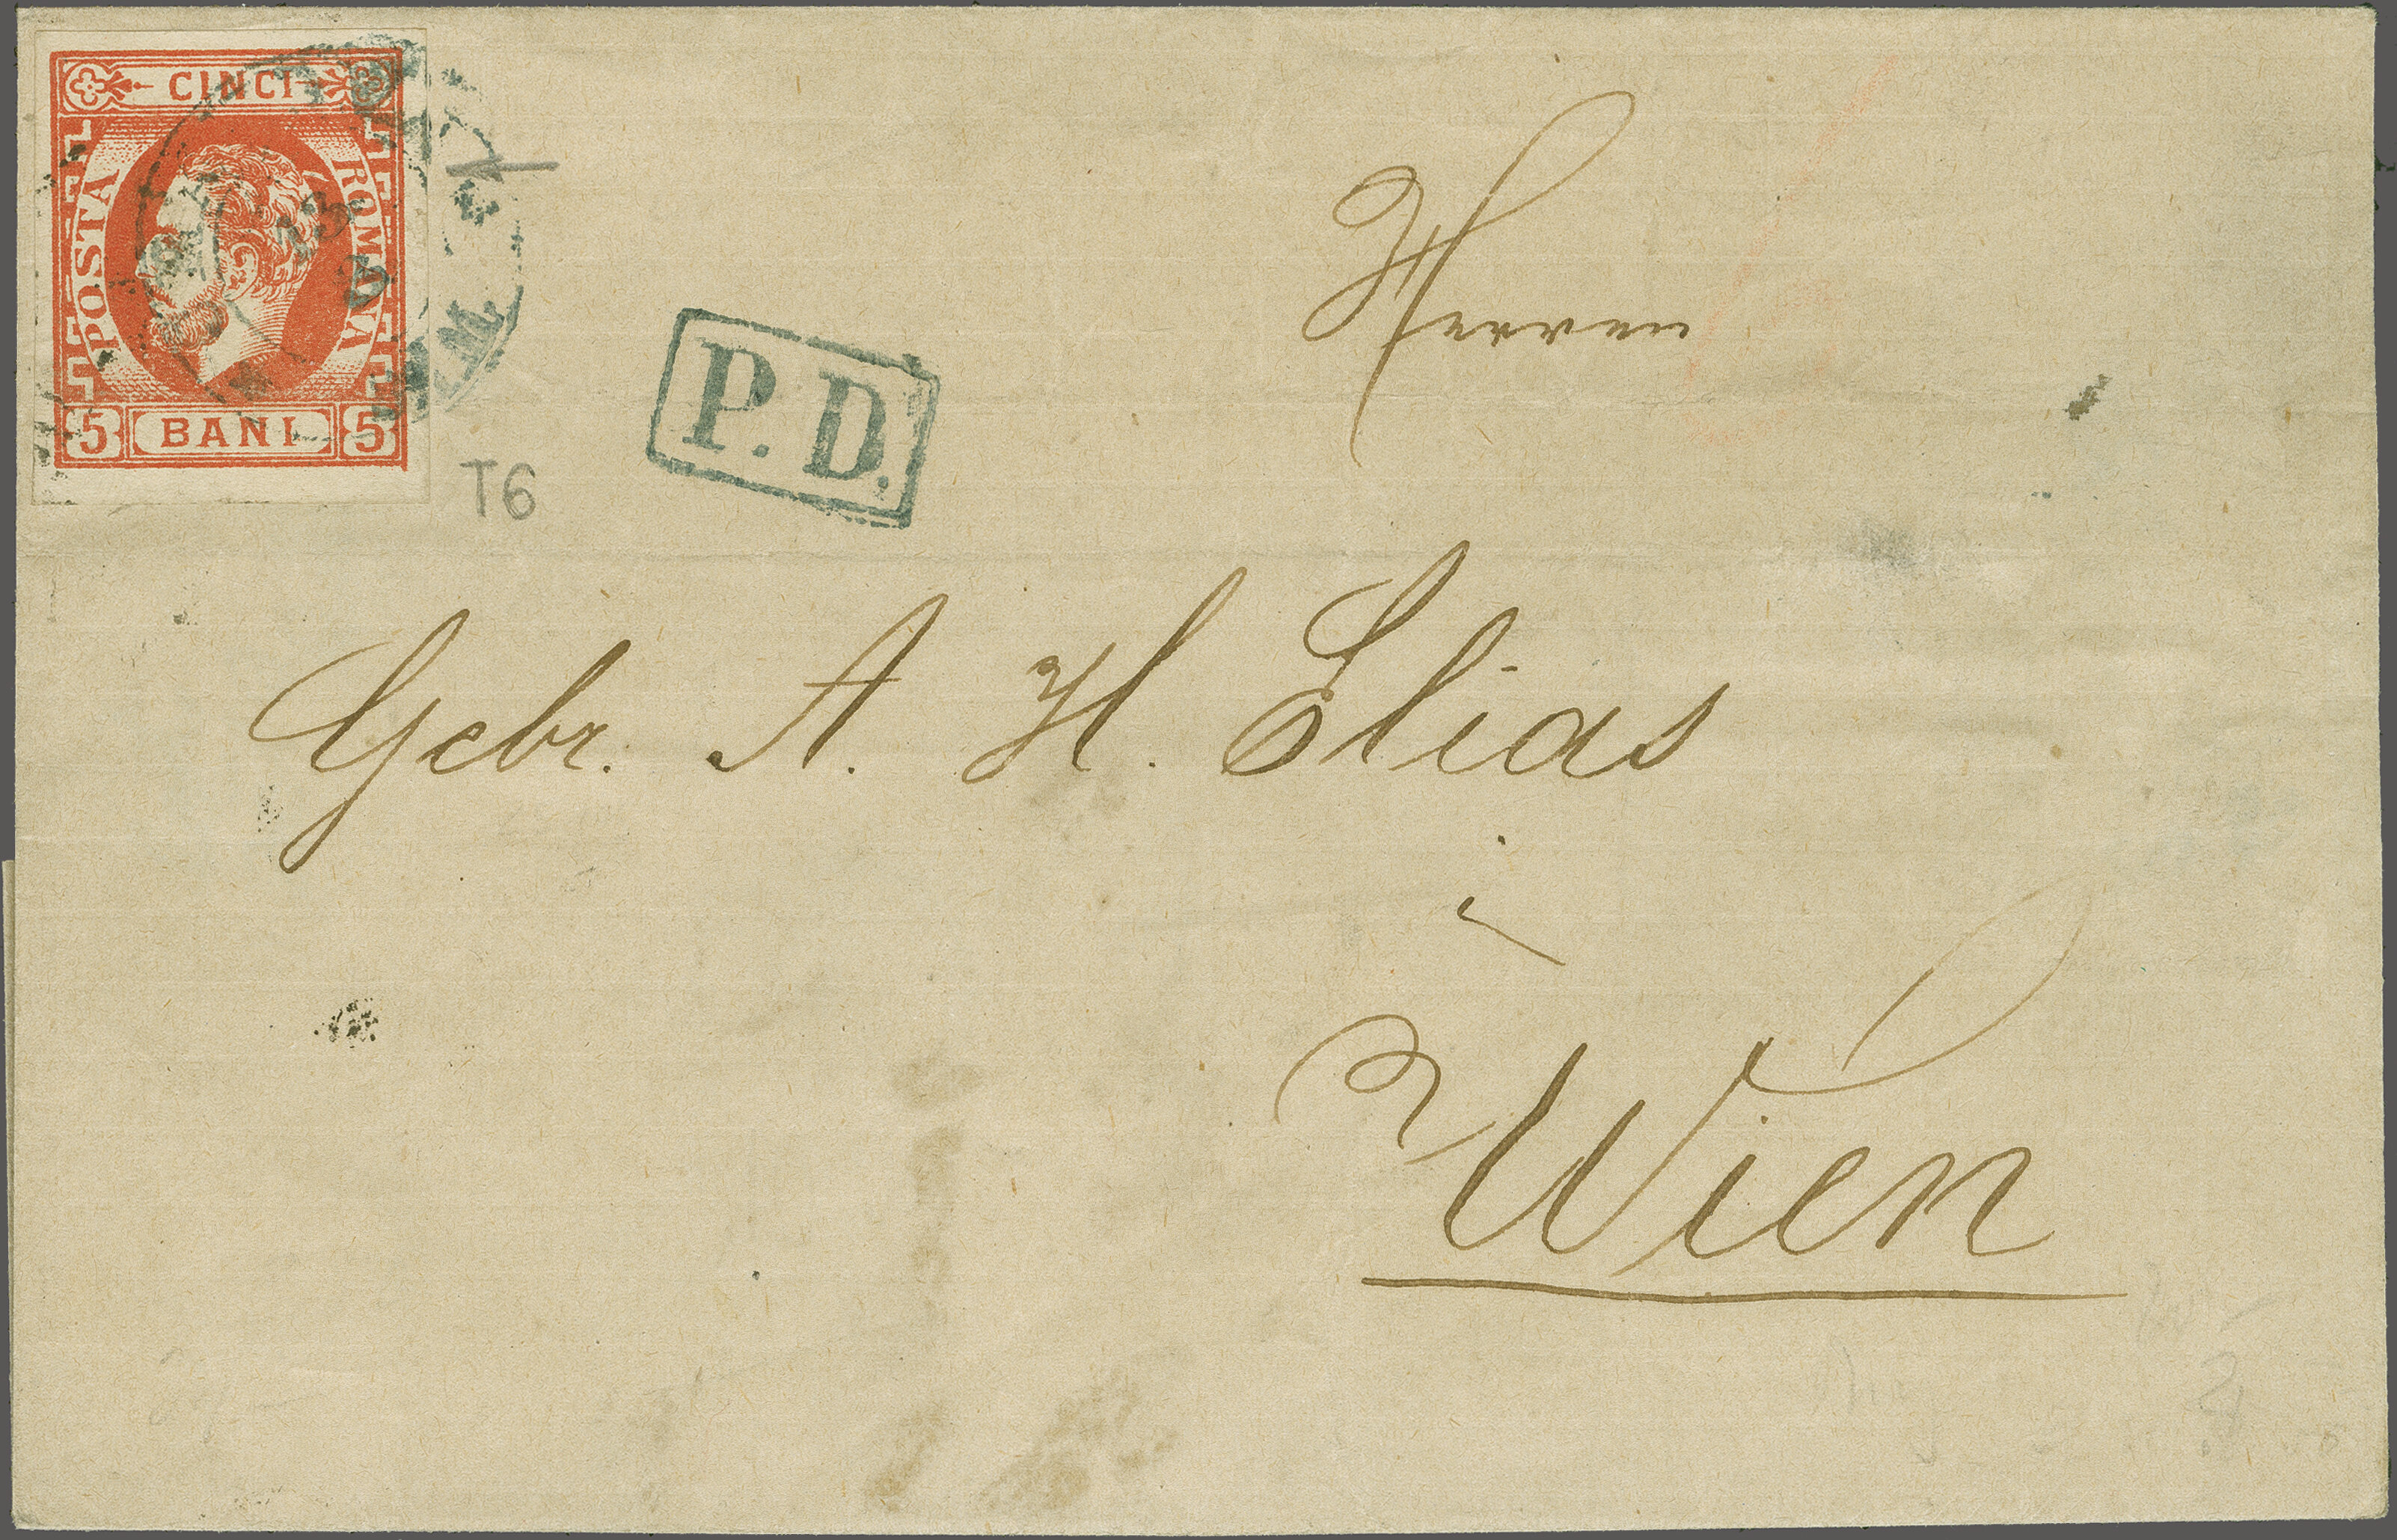 CINCI
POSTA
ROMANA
5 BANI 5
13 9
T6
P. D.
Herren
Gebr. A. H. Elias
à
Wien